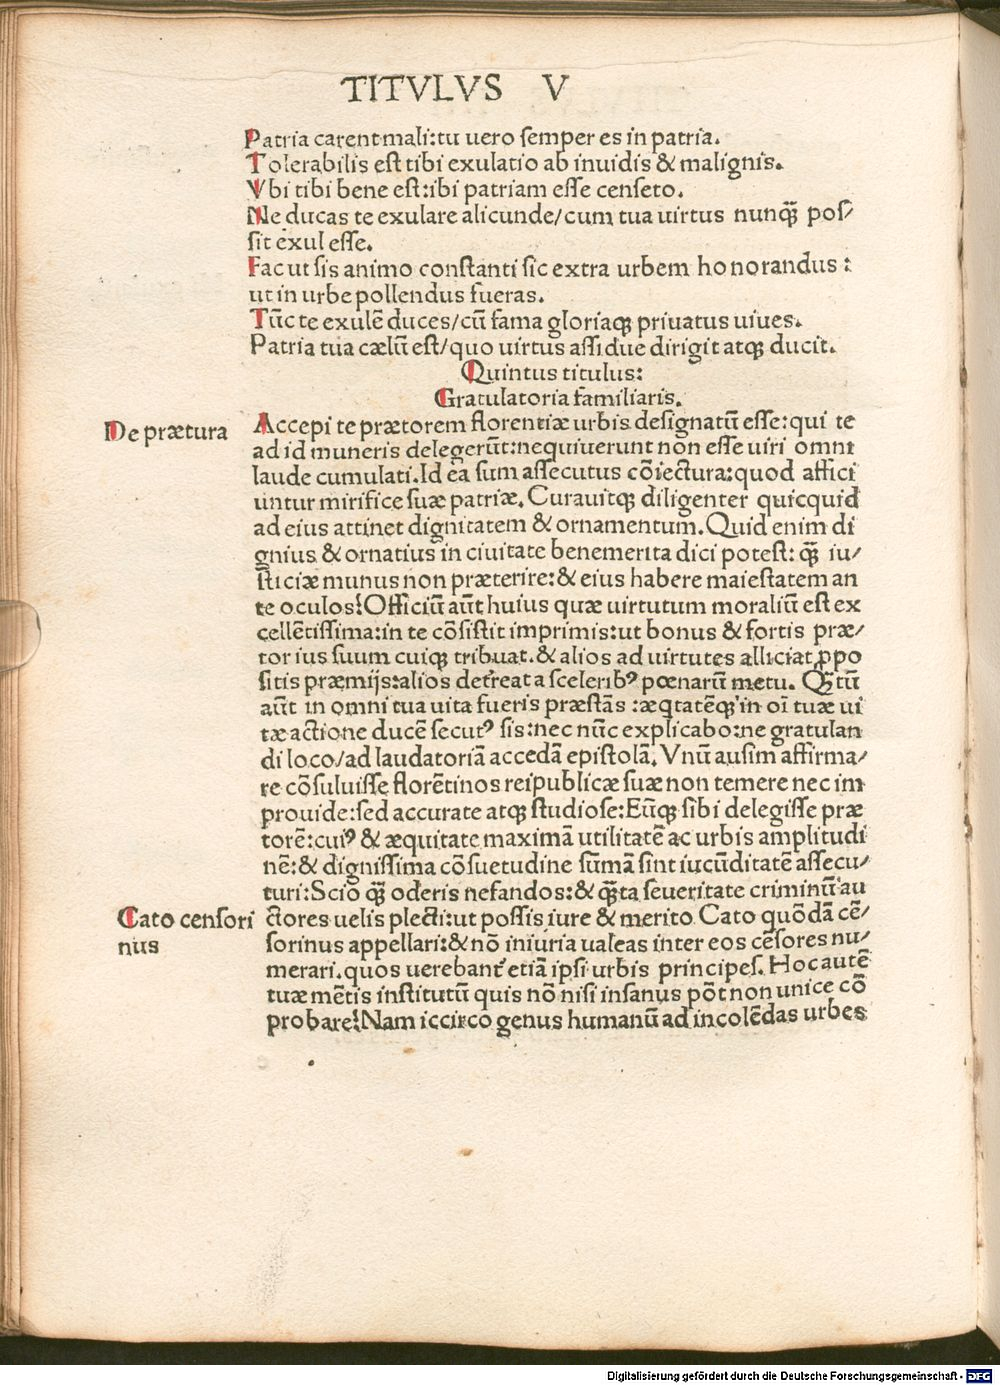 TITVLVS V
Patria carent mali:tu uero semper es in patria.
Tolerabilis est tibi exulatio ab inuidis & malignis.
Vbi tibi bene est:ibi patriam esse censeto.
Ne ducas te exulare alicunde/cum tua uirtus nunq̄ pos/
sit exul esse.
Fac ut sis animo constanti sic extra urbem honorandus :
ut in urbe pollendus fueras.
Tūc te exulē duces/cū fama gloriaqꝫ priuatus uiues.
Patria tua cælū est/quo uirtus assidue dirigit atqꝫ ducit.
Quintus titulus:
Gratulatoria familiaris.
De prætura
Accepi te prætorem florentiæ urbis designatū esse:qui te
ad id muneris delegerūt:nequiuerunt non esse uiri omni
laude cumulati.Id ea sum assecutus cōiectura:quod affici
untur mirifice suæ patriæ.Curauitqꝫ diligenter quicquid
ad eius attinet dignitatem & ornamentum.Quid enim di
gnius & ornatius in ciuitate benemerita dici potest: q̄ iu/
sticiæ munus non præterire:& eius habere maiestatem an
te oculos?Officiū aūt huius quæ uirtutum moraliū est ex
cellētissima:in te cōsistit imprimis:ut bonus & fortis præ/
tor ius suum cuiqꝫ tribuat.& alios ad uirtutes alliciat ꝓpo
sitis præmijs:alios deterreat a sceleribꝰ pœnarū metu. Q̄tū
aūt in omni tua uita fueris præstās :æqtatēqꝫ in oī tuæ ui
tæ actione ducē secutꝰ sis:nec nūc explicabo:ne gratulan
di loco/ad laudatoriā accedā epistolā.Vnū ausim affirma/
re cōsuluisse florētinos reipublicæ suæ non temere nec im
prouide:sed accurate atqꝫ studiose:Eūqꝫ sibi delegisse præ
torē:cuiꝰ & æquitate maximā utilitatē ac urbis amplitudi
nē:& dignissima cōsuetudine sūmā sint iucūditatē assecu/
turi:Scio q̄ oderis nefandos:& q̄ta seueritate criminū au
Cato censori
nus
ctores uelis plecti:ut possis iure & merito Cato quōdā cē/
sorinus appellari:& nō iniuria ualeas inter eos cēsores nu/
merari.quos uerebant᷑ etiā ipsi urbis principes. Hoc autē
tuæ mētis institutū quis nō nisi insanus pōt non unice cō
probare?Nam iccirco genus humanū ad incolēdas urbes
Digitalisierung gefördert durch die Deutsche Forschungsgemeinschaft - DFG